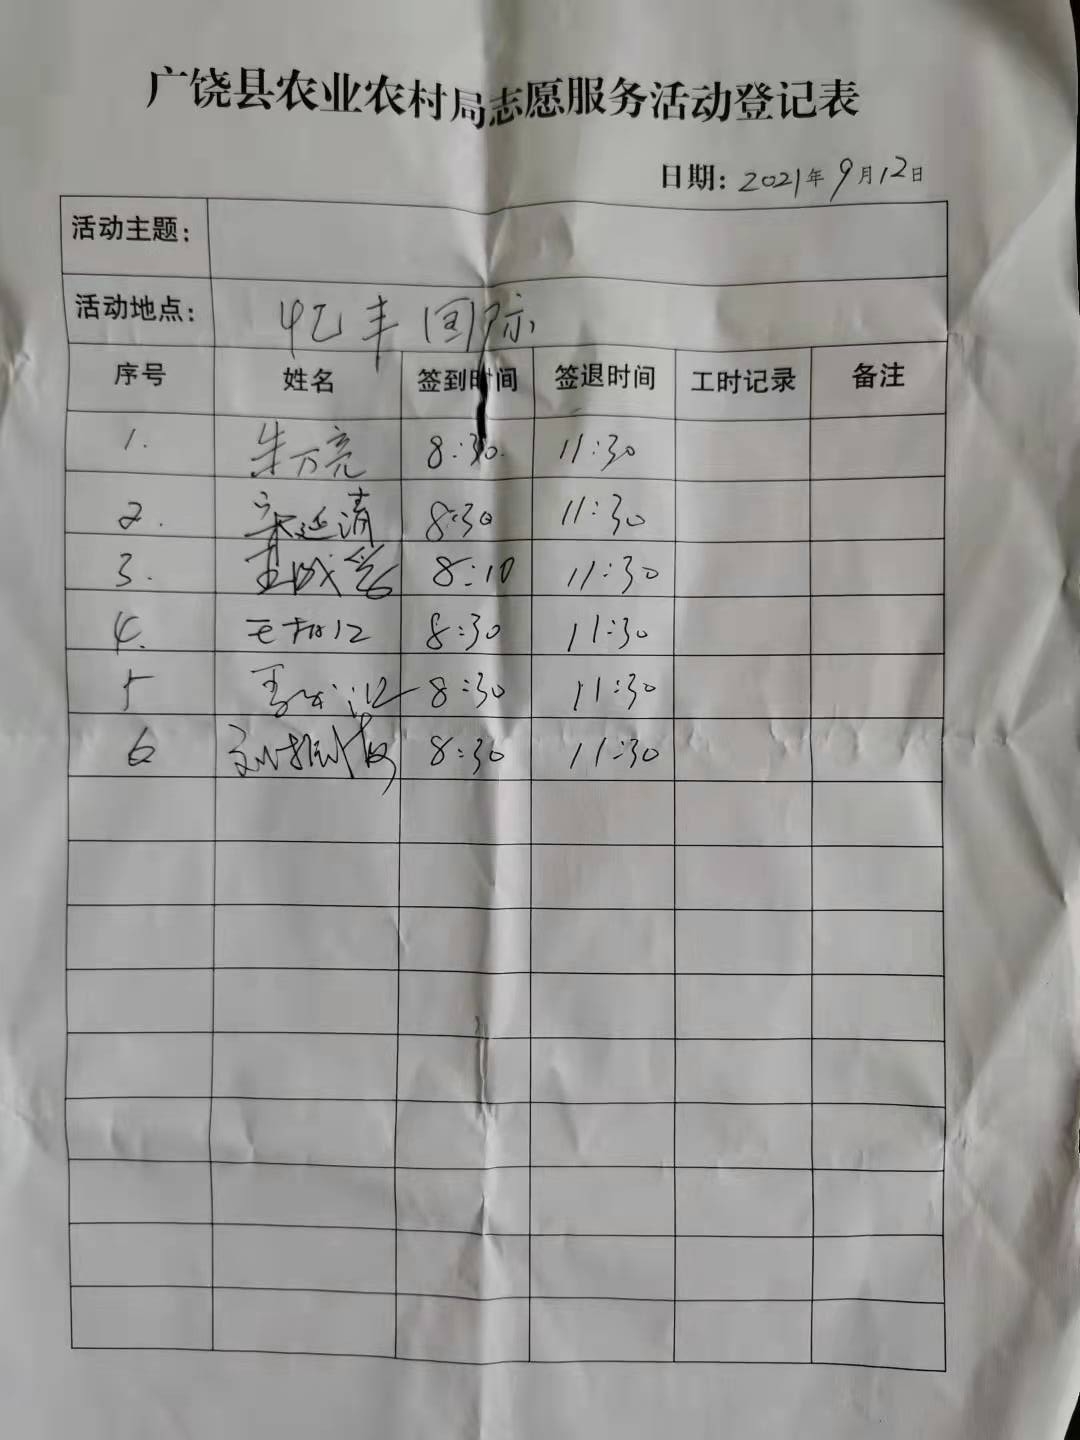 广饶县农业农村局志愿服务活动登记表
日期: 2021年9月12日
活动主题:
活动地点: 忆丰国际
序号 姓名 签到时间 签退时间 工时记录 备注
1. 朱万亮 8:30 11:30
2. 宋延清 8:30 11:30
3. 8:10 11:30
4. 8:30 11:30
5 8:30 11:30
6 8:30 11:30